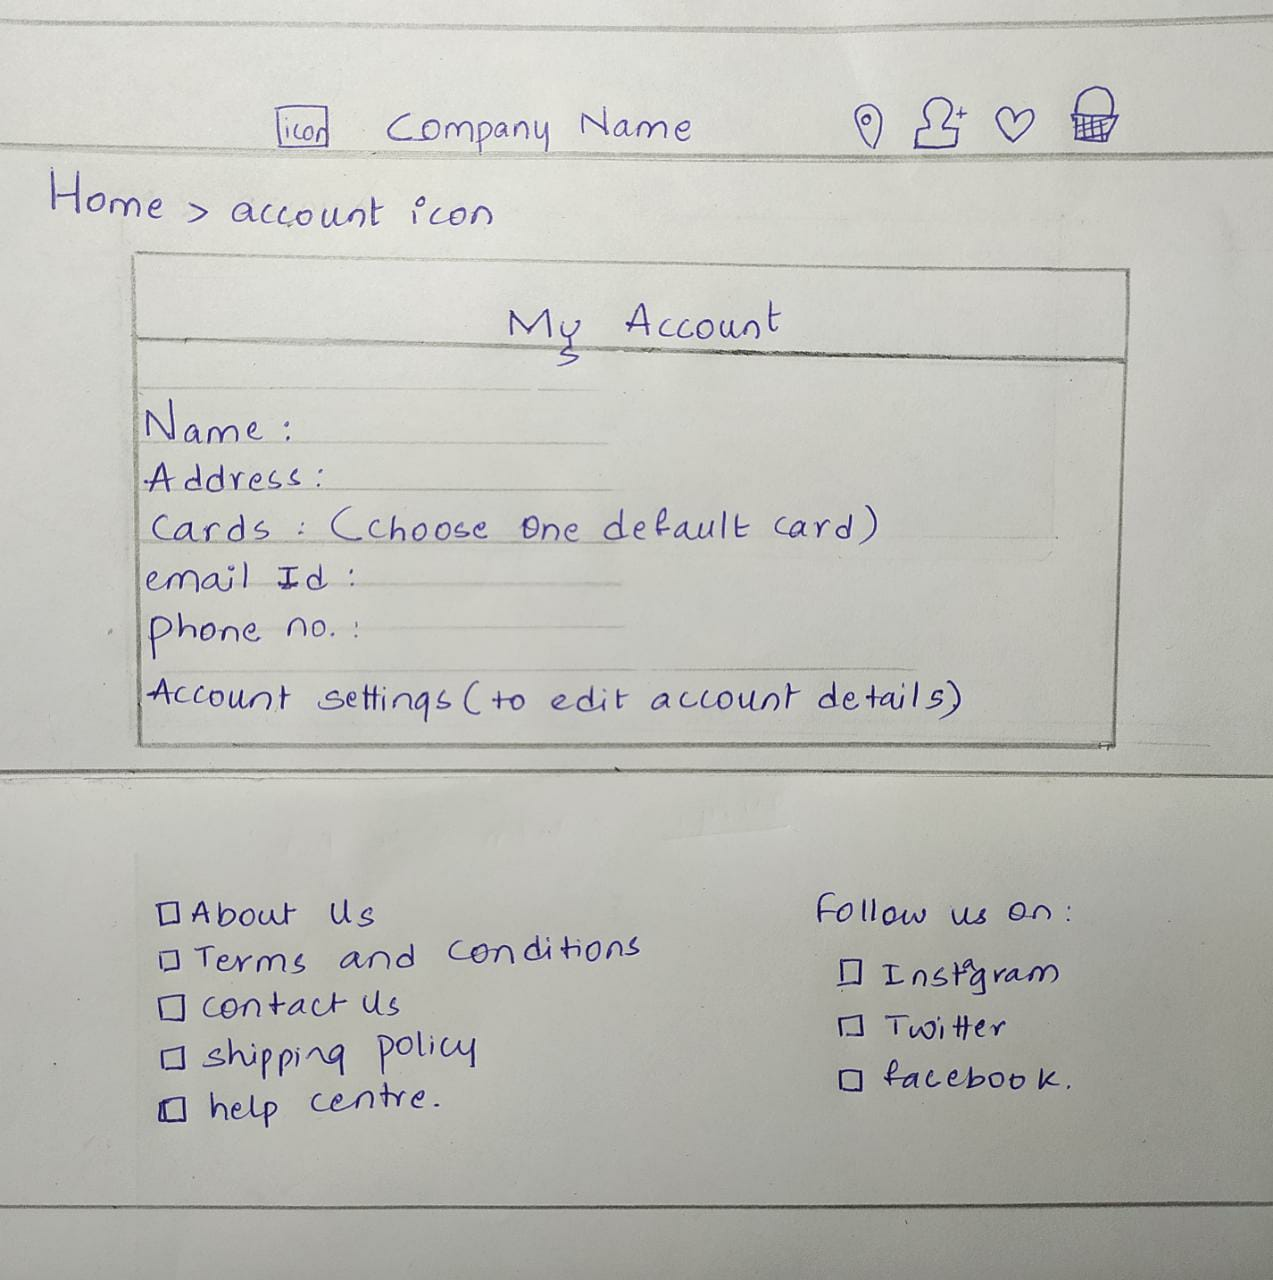 icon Company Name
Home > account icon
My Account
Name :
Address :
Cards : (choose one default card)
email Id :
phone no. :
Account settings (to edit account details)
About Us
Terms and conditions
contact Us
shipping policy
help centre.
Follow us on :
Instagram
Twitter
facebook.